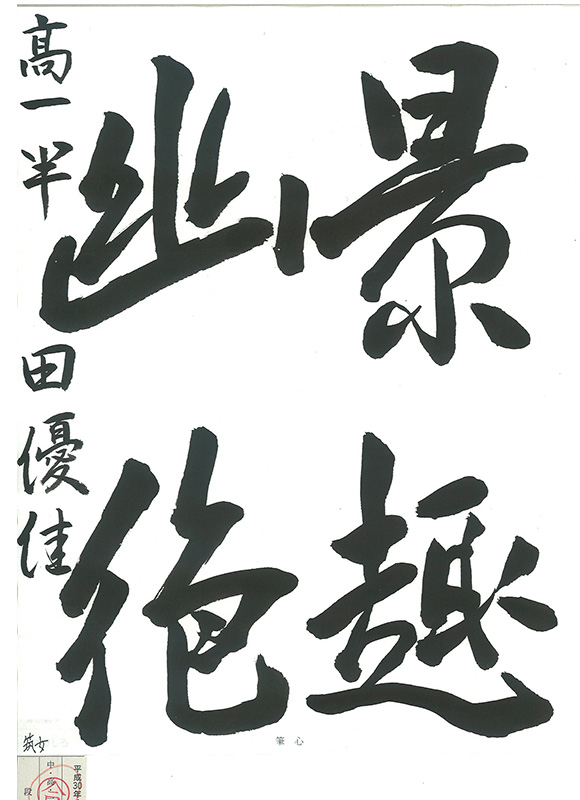 景趣
幽絶
高一 半田優佳
筑女
筆心
平成30年
中・高
段